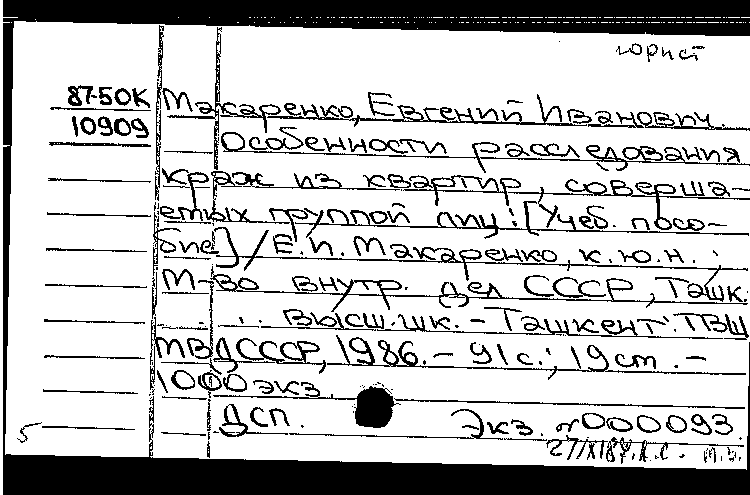 юрист
87-50К Макаренко, Евгений Иванович.
10909
Особенности расследования
краж из квартир, соверша-
емых группой лиц: [Учеб. посо-
бие] / Е.И. Макаренко, к.ю.н. ;
М-во внутр. дел СССР, Ташк.
высш. шк. - Ташкент: ТВШ
МВД СССР, 1986. - 91 с.; 19 см. -
1000 экз.
ДСП. Экз. N000093.
5